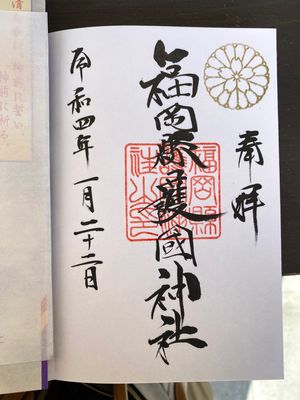 奉拝
福岡縣護國神社
令和四年一月二十二日